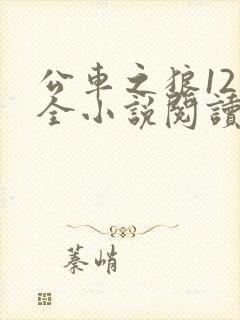 公車之狼12
全小說閱讀
蓁峭